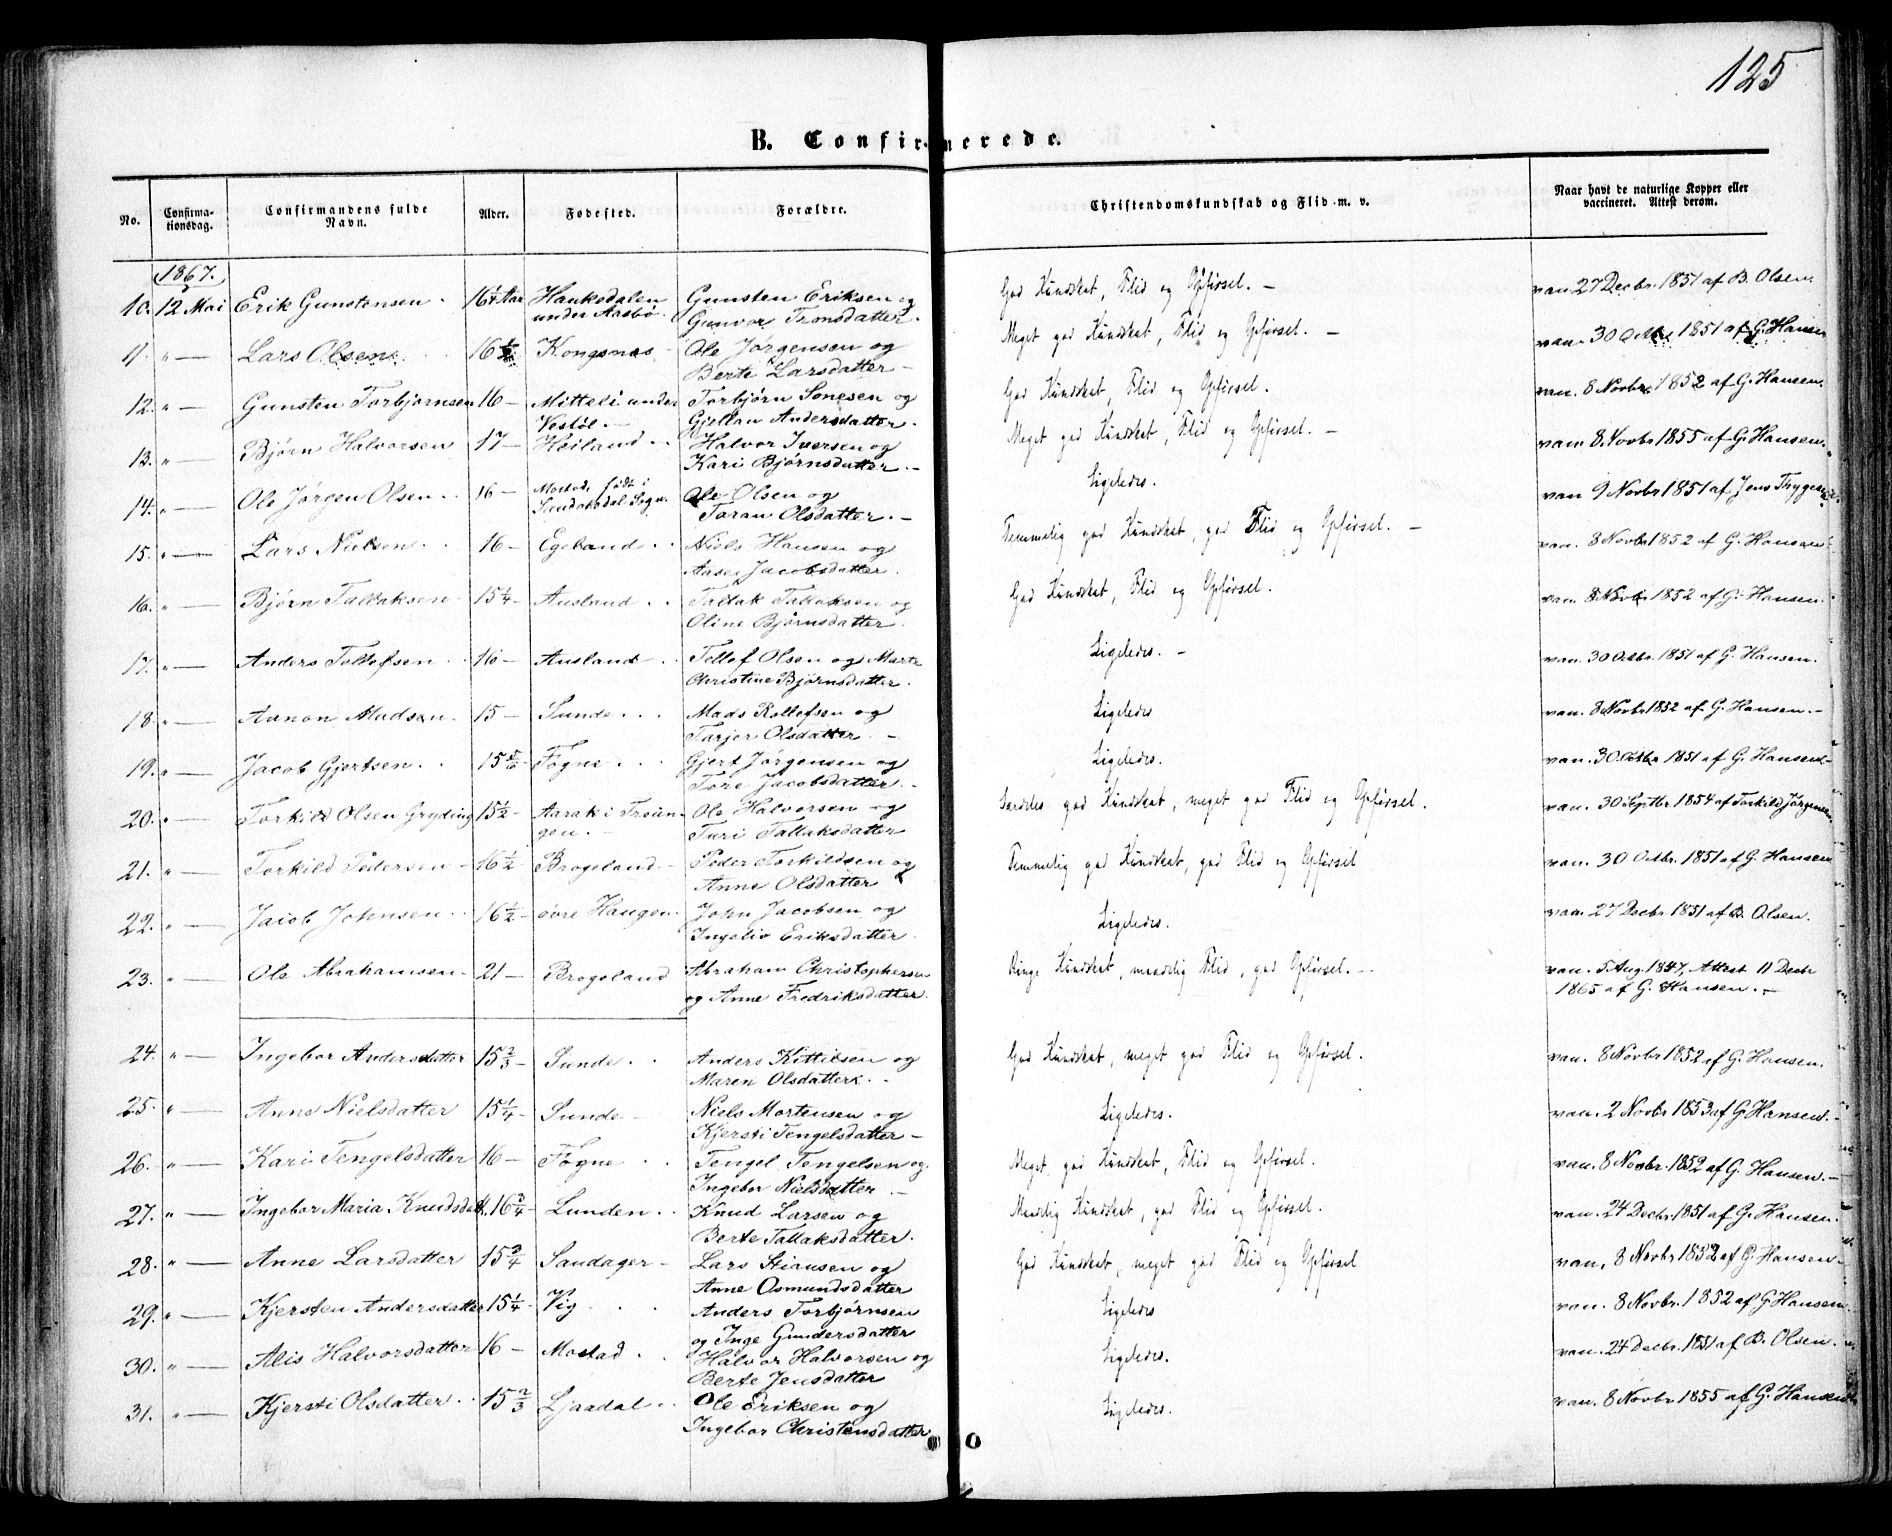 125
B. Confirmerede.
No. Confirmationsdag. Confirmandens fulde Navn. Alder. Fødested. Forældre. Christendomskundskab og Flid m. v. Naar havt de naturlige Kopper eller vaccineret. Attest derom.
1867.
10. 12 Mai Erik Gunstensen 16¼ Aar Haukedalen under Aasbø. Gunsten Eriksen og Gunvor Tronsdatter. God Kundskab, Flid og Opførsel. — van. 27 Decbr. 1851 af B. Olsen.
11. " — Lars Olsen 16 Kongsnes Ole Jørgensen og Berte Larsdatter — Meget god Kundskab, Flid og Opførsel. — van. 30 Octbr 1851 af G. Hansen
12. " — Gunsten Torbjørnsen 16 — Mitteli under Vestøl. — Torbjørn Sonesen og Gjellau Andersdatter. God Kundskab, Flid og Opførsel. van. 8 Novbr. 1852 af G. Hansen.
13. " — Bjørn Halvorsen 17 — Heiland Halvor Iversen og Kari Bjørnsdatter. — Meget god Kundskab, Flid og Opførsel. — van. 8 Novbr 1855 af G. Hansen.
14. " — Ole Jørgen Olsen 16 — Mostad, født i Søndeledal Sogn. Ole Olsen og Taran Olsdatter. — Ligeledes. van. 9 Novbr 1851 af Jens Trygesen
15. " — Lars Nielsen 16 — Egeland Niels Hansen og Aase Jacobsdatter. Temmelig god Kundskab, god Flid og Opførsel. — van. 8 Novbr 1852 af G. Hansen
16. " — Bjørn Tallaksen 15¼ — Ausland Tallak Tallaksen og Oline Bjørnsdatter. God Kundskab, Flid og Opførsel. van. 8 Novbr 1852 af G. Hansen.
17. " — Anders Tellefsen 16 — Ausland Tellef Olsen og Marte Christine Bjørnsdatter. Ligeledes. — van. 30 Octbr. 1851 af G. Hansen.
18. " — Aanon Madsen 15 — Sunde Mads Rollefsen og Tarjer Olsdatter. — Ligeledes van. 8 Novbr 1852 af G. Hansen. —
19. " — Jacob Gjertsen 15 5/6 Fogne Gjert Jørgensen og Tore Jacobsdatter. — Ligeledes. van. 30 Octbr 1851 af G. Hansen.
20. " — Torkild Olsen Gryding 15½ — Aarak i Troungen. — Ole Halvorsen og Turi Tallaksdatter Særdeles god Kundskab, meget god Flid og Opførsel. van. 30 Septbr. 1854 af Torkild Jørgensen
21. " — Torkild Pedersen 16½ — Brogeland Peder Torkildsen og Anne Olsdatter Temmelig god Kundskab, god Flid og Opførsel van. 30 Octbr. 1851 af G. Hansen
22. " — Jacob Johnsen 16½ — øvre Haugen John Jacobsen og Ingeliv Eriksdatter. Ligeledes. van. 27 Decbr. 1851 af B. Olsen.
23. " — Ole Abrahamsen 21 — Brogeland Abraham Christophersen og Anne Fredriksdatter. Ringe Kundskab, maadelig Flid, god Opførsel. — van. 5 Aug. 1847, Attest 11 Decbr 1865 af G. Hansen. —
24. " — Ingebor Andersdatter 15⅔ — Sunde Anders Kittilsen og Maren Olsdatter. — God Kundskab, meget god Flid og Opførsel. van. 8 Novbr 1852 af G. Hansen.
25. " — Anne Nielsdatter 15¼ — Sunde — Niels Mortensen og Kjersti Tengelsdatter — Ligeledes. van. 2 Novbr 1853 af G. Hansen. —
26. " — Kari Tengelsdatter 16 — Fogne Tengel Tengelsen og Ingebor Nielsdatter. — Meget god Kundskab, Flid og Opførsel. van. 8 Novbr. 1852 af G. Hansen. —
27. " — Ingebor Maria Knudsdatt. 16¾ — Lunden Knud Larsen og Berte Tallaksdatter. Maadelig Kundskab, god Flid og Opførsel. van. 24 Decbr. 1851 af G. Hansen.
28. " — Anne Larsdatter 15¾ Sandager — Lars Stiansen og Anne Osmundsdatter God Kundskab, meget god Flid og Opførsel van. 8 Novbr 1852 af G. Hansen
29. " — Kjersten Andersdatter 15¼ — Vig Anders Torbjørnsen og Inge Gundersdatter Ligeledes van. 8 Novbr. 1852 af G. Hansen.
30. " — Alis Halvorsdatter 16 — Mostad Halvor Halvorsen og Berte Jensdatter Ligeledes. van. 24 Decbr. 1851 af B. Olsen.
31. " — Kjersti Olsdatter 15⅔ Ljaadal Ole Eriksen og Ingebor Christensdatter Ligeledes. van. 8 Novbr 1855 af G. Hansen